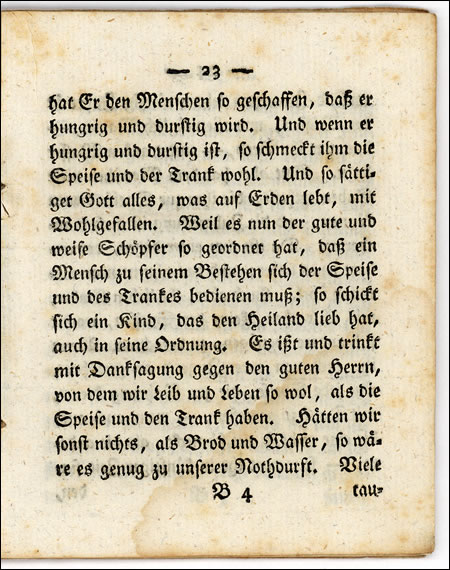 — 23 —
hat Er den Menschen so geschaffen, daß er
hungrig und durstig wird. Und wenn er
hungrig und durstig ist, so schmeckt ihm die
Speise und der Trank wohl. Und so sätti-
get Gott alles, was auf Erden lebt, mit
Wohlgefallen. Weil es nun der gute und
weise Schöpfer so geordnet hat, daß ein
Mensch zu seinem Bestehen sich der Speise
und des Trankes bedienen muß; so schickt
sich ein Kind, das den Heiland lieb hat,
auch in seine Ordnung. Es ißt und trinkt
mit Danksagung gegen den guten Herrn,
von dem wir Leib und Leben so wol, als die
Speise und den Trank haben. Hätten wir
sonst nichts, als Brod und Wasser, so wä-
re es genug zu unserer Nothdurft. Viele
B 4 tau-